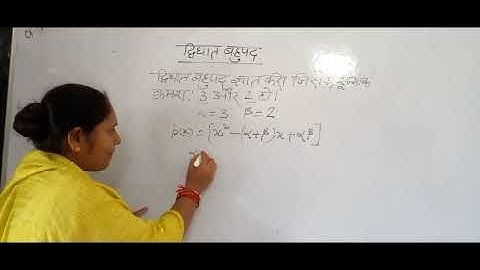 द्विघात बहुपद
द्विघात बहुपद ज्ञात करो जिसके शून्यक
क्रमशः 3 और 2 हो।
α = 3 β = 2
p(x) = [x² - (α+β)x + αβ]